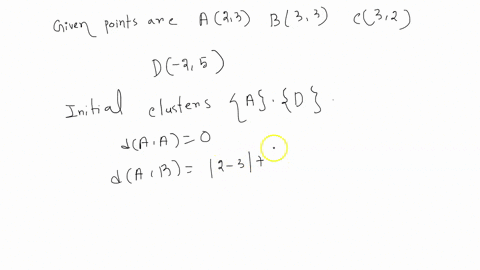 Given points are A(2,3) B(3,3) C(3,2)
D(-2,5)
Initial clusters {A}.{D}.
d(A.A)=0
d(A,B)= |2-3|+